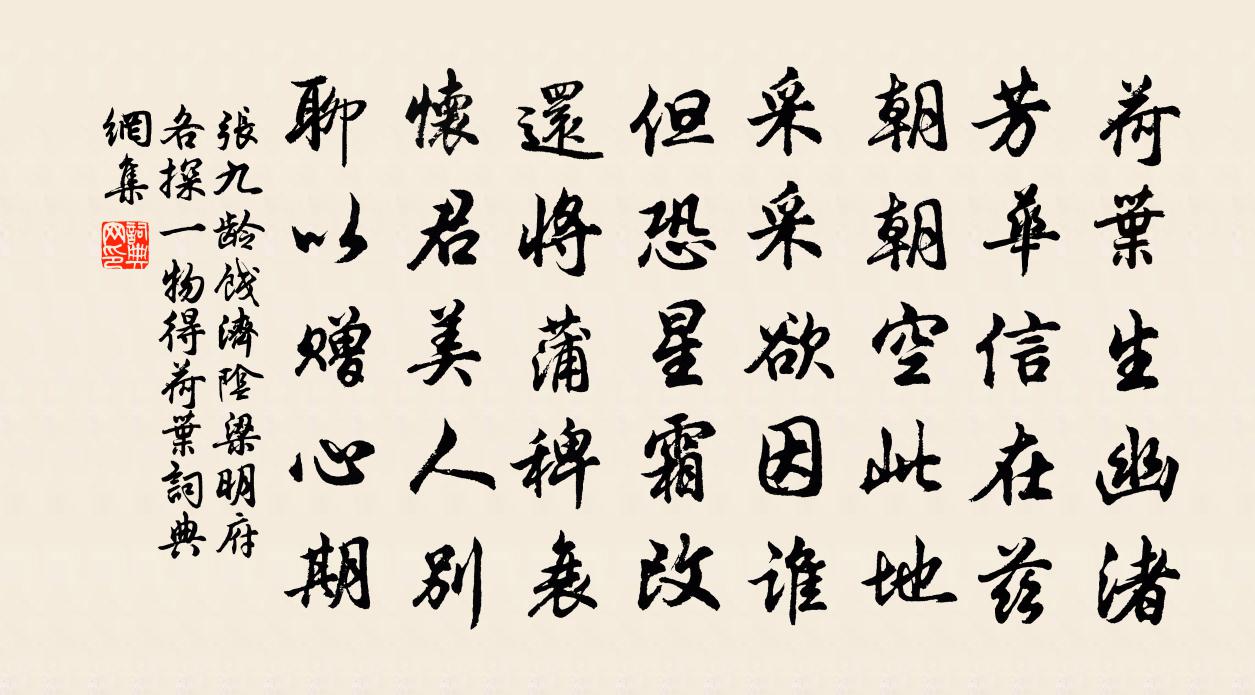 荷葉生幽渚
芳華信在茲
朝朝空此地
采采欲因誰
但恐星霜改
還將蒲稗衰
懷君美人別
聊以赠心期
張九龄餞濟陰梁明府
各探一物得荷葉詞典
網集
詞典
网印